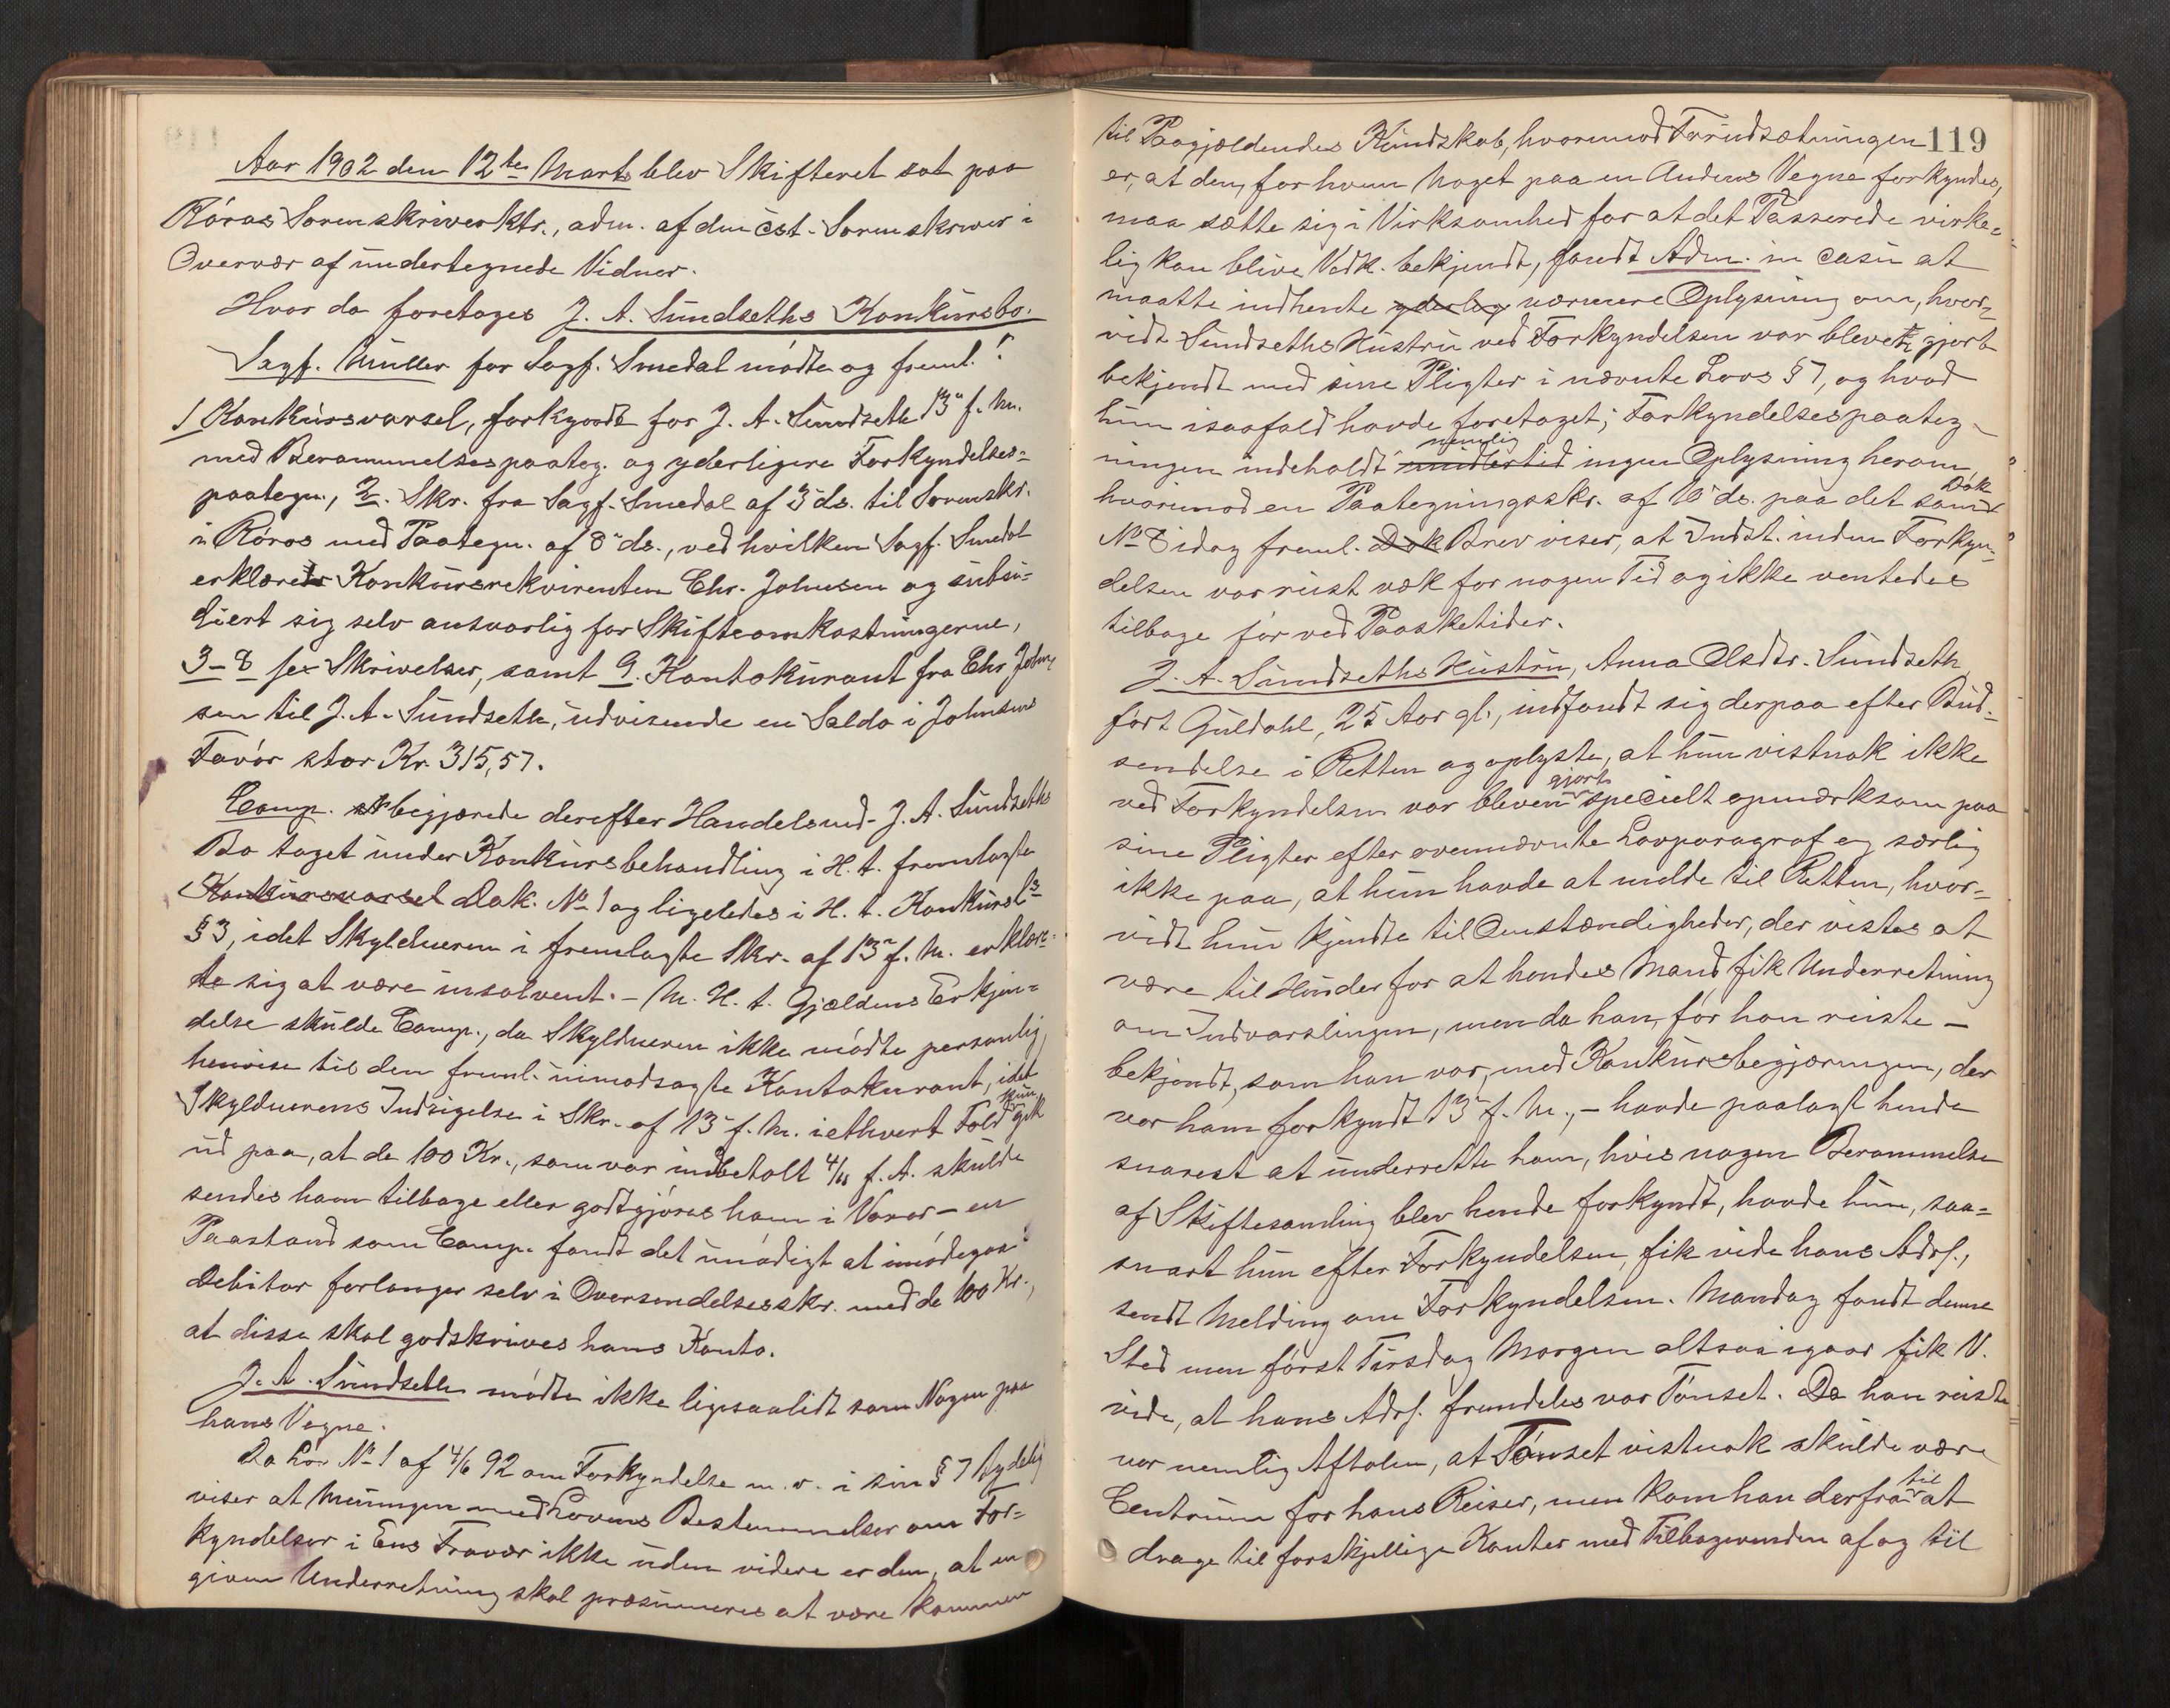 Aar 1902 den 12te Marts blev Skifteret sat paa
Röros Sorenskriverktr., adm. af den cst. Sorenskriver i
Overvær af undertegnede Vidner.
Hvor da foretoges J. A. Sundseths Konkursbo.
Sagf. Müller for Sagf. Smedal mödte og freml.:
1 Konkursvarsel, forkyndt for J. A. Sundseth 13 f. M.
med Berammelsespaateg. og yderligere Forkyndelses-
paategn., 2. Skr. fra Sagf. Smedal af 3 ds. til Sorenskr.
i Röros med Paategn. af 8 ds., ved hvilken Sagf. Smedal
erklærer Konkursrekvirenten Chr. Johnsen og subsi-
diert sig selv ansvarlig for Skifteomkostningerne,
3-8 sex Skrivelser, samt 9. Kontokurant fra Chr. John-
sen til J. A. Sundseth, udvisende en Saldo i Johnsens
Favör stor Kr. 315,57.
Comp. begjærede derefter Handelsmd. J. A. Sundseths
Bo taget under Konkursbehandling i H. t. fremlagte
Konkursvarsel Dok. No 1 og ligeledes i H. t. Konkursl's
§ 3, idet Skyldneren i fremlagte Skr. af 13 f. M. erklære-
de sig at være insolvent. - M. H. t. Gjældens Erkjen-
delse skulde Comp., da Skyldneren ikke mödte personlig,
henvise til den freml. uimodsagte Kontokurant, idet
Skyldnerens Indsigelse i Skr. af 13 f. M. i ethvert Fald kun gik
ud paa, at de 100 Kr., som var indbetalt 4/11 f. A. skulde
sendes ham tilbage eller godtgjöres ham i Varer - en
Paastand som Comp. fandt det unödigt at imödegaa:
Debitor forlanger selv i Oversendelsesskr. med de 100 Kr.,
at disse skal godskrives hans Konto.
J. A. Sundseth mödte ikke ligesaalidt som Nogen paa
hans Vegne.
Da Lov No 1 af 4/6 92 om Forkyndelse m. v. i sin § 7 tydelig
viser at Meningen med Lovens Bestemmelser om For-
kyndelser i Ens Fravær ikke uden videre er den, at en
given Underretning skal præsumeres at være kommen
119
til Paagjældendes Kundskab, hvorimod Forudsætningen
er, at den, for hvem Noget paa en Andens Vegne forkyndes,
maa sætte sig i Virksomhed for at det Passerede virke-
lig kan blive Vedk. bekjendt, fandt Adm. in casu at
maatte indhente yderlig nærmere Oplysning om, hvor-
vidt Sundseths Hustru ved Forkyndelsen var blevet gjort
bekjendt med sine Pligter i nævnte Lovs § 7, og hvad
hun isaafald havde foretaget; Forkyndelsespaateg-
ningen indeholdt imidlertid nemlig ingen Oplysning herom,
hvorimod en Paategningsskr. af 10 ds. paa det som Dok
No 8 idag freml. Dok Brev viser, at Indst. inden Forkyn-
delsen var reist væk for nogen Tid og ikke ventedes
tilbage för ved Paasketider.
J. A. Sundseths Hustru, Anna Olsdtr. Sundseth
fört Guldahl, 25 Aar gl., indfandt sig derpaa efter Bud-
sendelse i Retten og oplyste, at hun vistnok ikke
ved Forkyndelsen var bleven gjort specielt opmærksom paa
sine Pligter efter ovennævnte Lovparagraf og særlig
ikke paa, at hun havde at melde til Retten, hvor-
vidt hun kjendte til Omstændigheder, der vistes at
være til Hinder for at hendes Mand fik Underretning
om Indvarslingen, men da han, för han reiste -
bekjendt, som han var, med Konkursbegjæringen, der
var ham forkyndt 13 f. M., - havde paalagt hende
snarest at underrette ham, hvis nogen Berammelse
af Skiftesamling blev hende forkyndt, havde hun, saa-
snart hun efter Forkyndelsen, fik vide hans Adrs.,
sendt Melding om Forkyndelsen. Mandag fandt denne
Sted men först Tirsdag Morgen altsaa igaar fik V.
vide, at hans Adrs. fremdeles var Tönset. Da han reiste
var nemlig Aftalen, at Tönset vistnok skulde være
Centrum for hans Reiser, men kom han derfra til at
drage til forskjellige Kanter med Tilbagevenden af og til